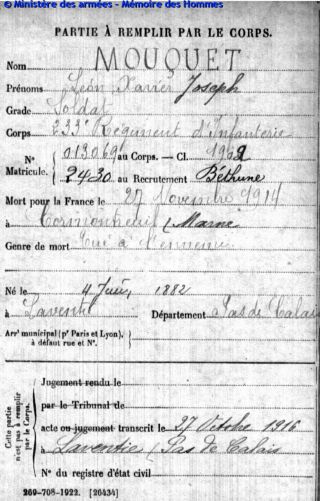 © Ministère des armées - Mémoire des Hommes
PARTIE À REMPLIR PAR LE CORPS.
Nom MOUQUET
Prénoms Léon Xavier Joseph
Grade Soldat
Corps 233e Régiment d'Infanterie
N° 013069 au Corps. — Cl. 1902
Matricule. 2430 au Recrutement Béthune
Mort pour la France le 27 Novembre 1914
à Cormontreuil (Marne
Genre de mort Tué à l'ennemi
Né le 4 1882
à Laventie Département Pas de Calais
Arrt municipal (pr Paris et Lyon),
à défaut rue et N°.
Cette partie n'est pas à remplir par le Corps.
Jugement rendu le
par le Tribunal de
acte ou jugement transcrit le 27 Octobre 1916
à Laventie (Pas de Calais
N° du registre d'état civil
269-708-1922. [26434]